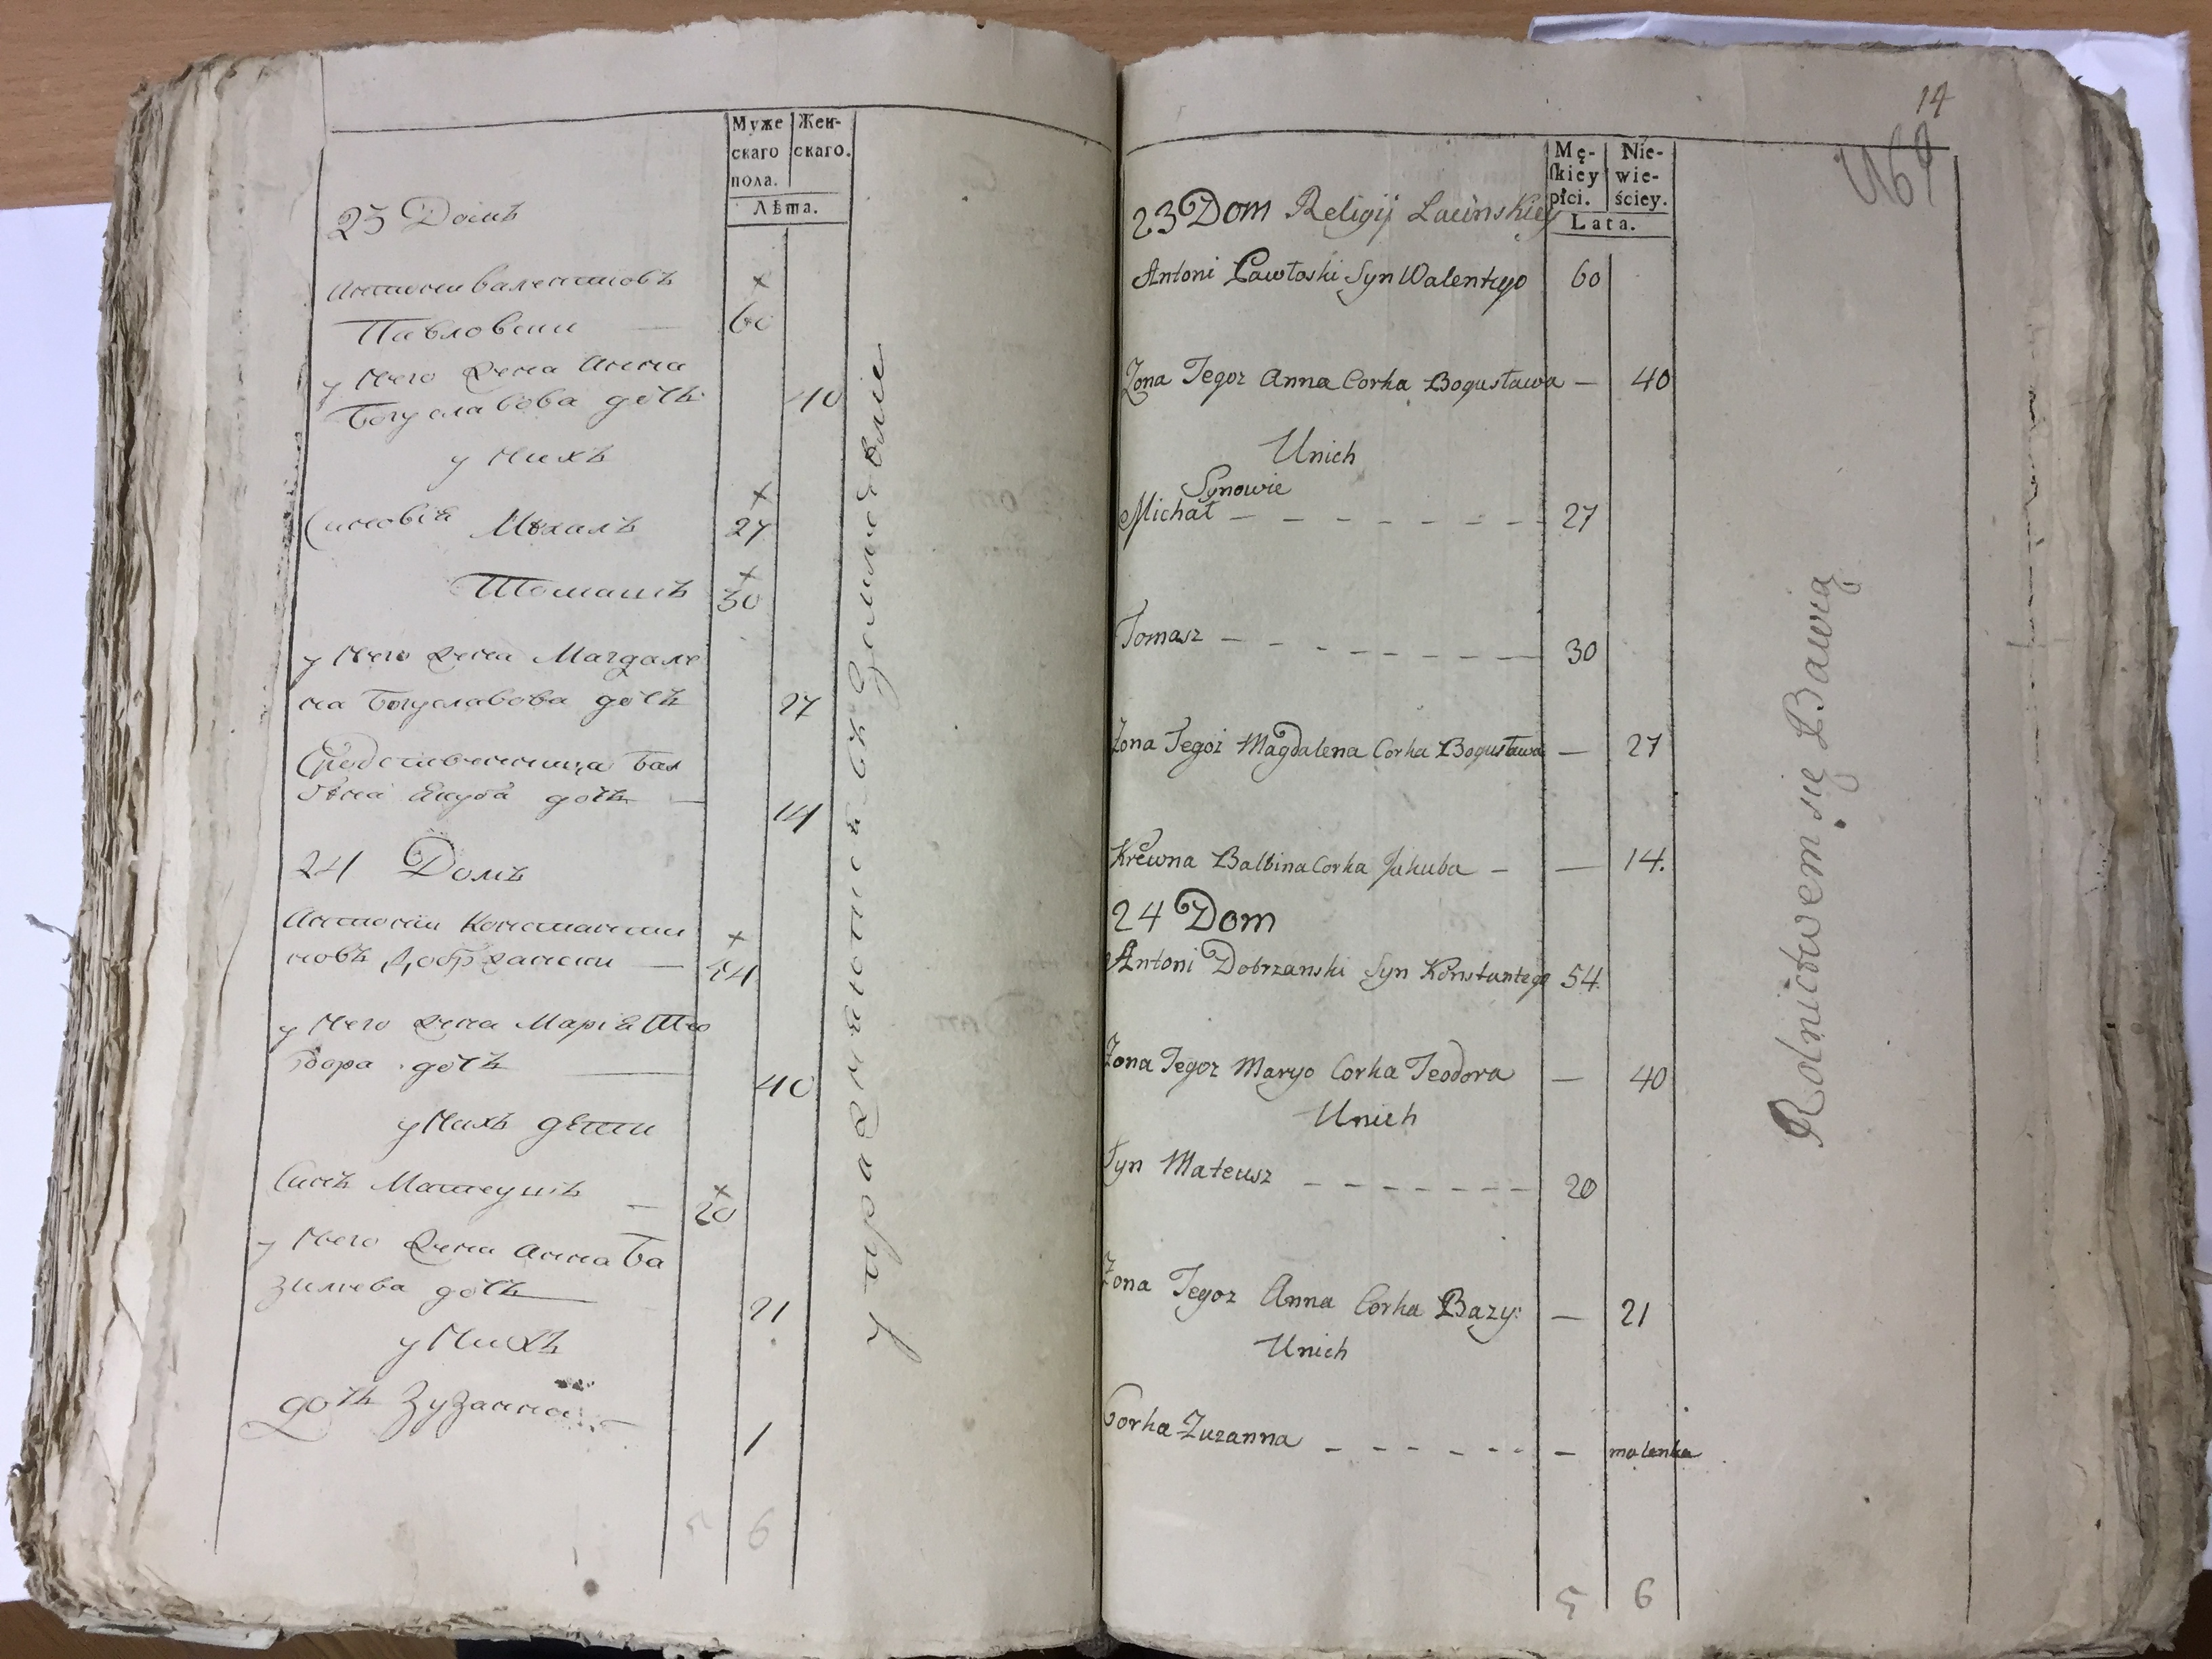 Муже
скаго
пола.
Жен-
скаго.
Лѣта.
23 Домъ
Антони Валентновъ
Павловски — 60
у него жена Анна
Богуславова дочь 40
у нихъ
Синовія Михалъ 27
Томашъ 30
у него жена Магдале
на Богуславова дочь 27
Сродственница Бал
бѣна Якуба дочь — 14
24 Домъ
Антоніи Константи
новъ Добржански — 54
у него жена Марія Тео
дора дочь — 40
у нихъ дѣти
Синъ Матеушъ — 20
у него жена Анна Ба
зилева дочь — 21
у нихъ
дочь Зузанна — 1
5 6
упражняются въ земледѣліи
14
Mę-
ſkiey
płci.
Nie-
wie-
ściey.
Lata.
23 Dom Religij Lacinskiey
Antoni Pawłoski Syn Walentego 60
Zona Tegoz Anna Corka Bogusława — 40
Unich
Synowie
Michał — — — — — — — 27
Tomasz — — — — — — — 30
Zona Tegoż Magdalena Corka Bogusława — 27
Krewna Balbina Corka Jakuba — — 14.
24 Dom
Antoni Dobrzanski Syn Konstantego 54.
Zona Tegoz Marya Corka Teodora — 40
Unich
Syn Mateusz — — — — — — — 20
Zona Tegoz Anna Corka Bazy: — 21
Unich
Corka Zuzanna — — — — — — — malenka
5 6
Rolnictwem się Bawią